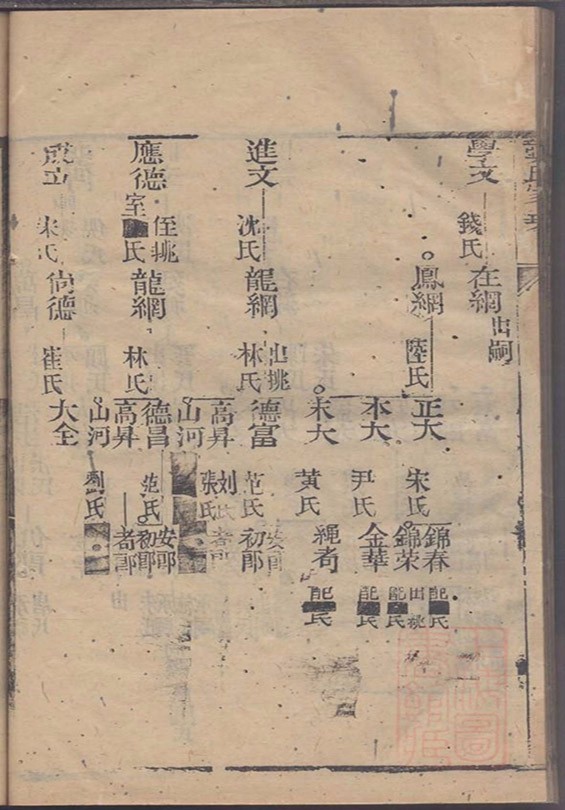 學文
錢氏
在網
出嗣
鳳網
陸氏
正大
宋氏
錦春
配
氏
錦榮
田
配
氏
本大
尹氏
金華
配
氏
末大
黃氏
繩者
配
氏
進文
沈氏
龍網
出挑
林氏
德富
范氏
安郎
初郎
高昇
刘氏
者郎
張氏
山河
應德
室
氏
侄挑
龍網
林氏
德昌
范氏
安郎
初郎
高昇
者郎
山河
劉氏
成立
宋氏
尚德
崔氏
大全